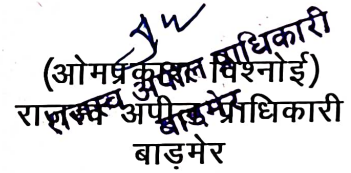 (ओमप्रकाश विश्नोई)
राजस्व अपील प्राधिकारी
बाड़मेर
राजस्व अपील प्राधिकारी
बाड़मेर